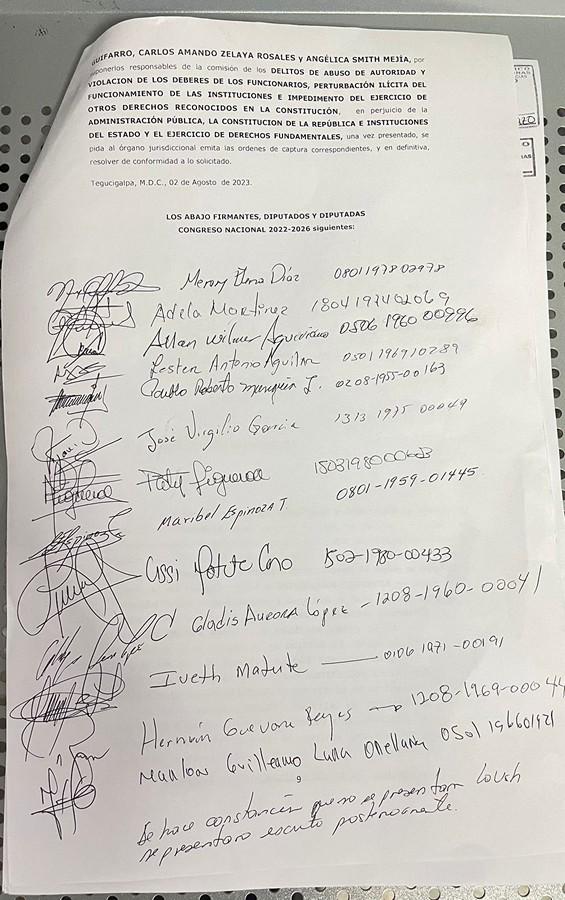 GUIFARRO, CARLOS AMANDO ZELAYA ROSALES y ANGÉLICA SMITH MEJÍA, por
suponerlos responsables de la comisión de los DELITOS DE ABUSO DE AUTORIDAD Y
VIOLACION DE LOS DEBERES DE LOS FUNCIONARIOS, PERTURBACIÓN ILÍCITA DEL
FUNCIONAMIENTO DE LAS INSTITUCIONES E IMPEDIMENTO DEL EJERCICIO DE
OTROS DERECHOS RECONOCIDOS EN LA CONSTITUCIÓN, en perjuicio de la
ADMINISTRACIÓN PÚBLICA, LA CONSTITUCION DE LA REPUBLICA E INSTITUCIONES
DEL ESTADO Y EL EJERCICIO DE DERECHOS FUNDAMENTALES, una vez presentado, se
pida al órgano jurisdiccional emita las ordenes de captura correspondientes, y en definitiva,
resolver de conformidad a lo solicitado.
Tegucigalpa, M.D.C., 02 de Agosto de 2023.
LOS ABAJO FIRMANTES, DIPUTADOS Y DIPUTADAS
CONGRESO NACIONAL 2022-2026 siguientes:
Merary Elena Díaz 0801197802978
Adela Martinez
Allan Wilmer 0506 1960 00996
Lesten Antonio Aguilar
Roberto 0208-1955-00163
José Virgilio Garcia 1313 1975 00049
Paty Figueroa
Maribel Espinoza T. 0801-1959-01445
Cissi 1502-1980-00433
Gladis Aurora López - 1208-1960-00041
Iveth Matute 0106 1971-00191
Hernán Guevara Reyes 1208-1969-000
Marlon Guillermo Luna Orellana 0501
Se hace constancia que no se presentam
se presentara escrito posteriormente.